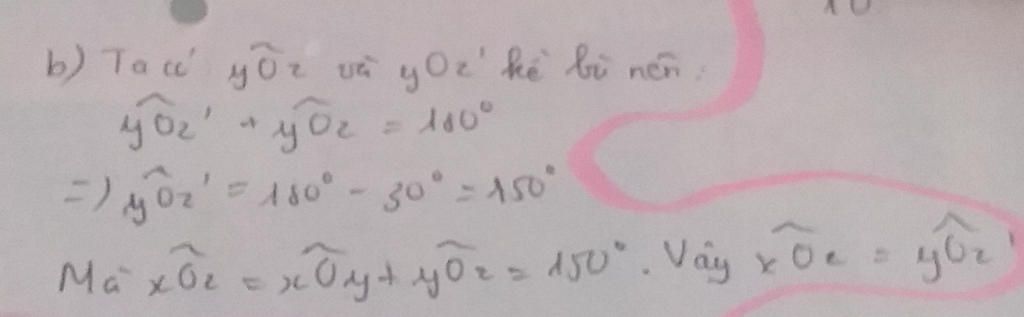 10
b) Ta có yÔz và yOz' kề bù nên:
yÔz' + yÔz = 180°
=) yÔz' = 180° - 30° = 150°
Mà xÔz = xÔy + yÔz = 150°. Vậy xÔz = yÔz'